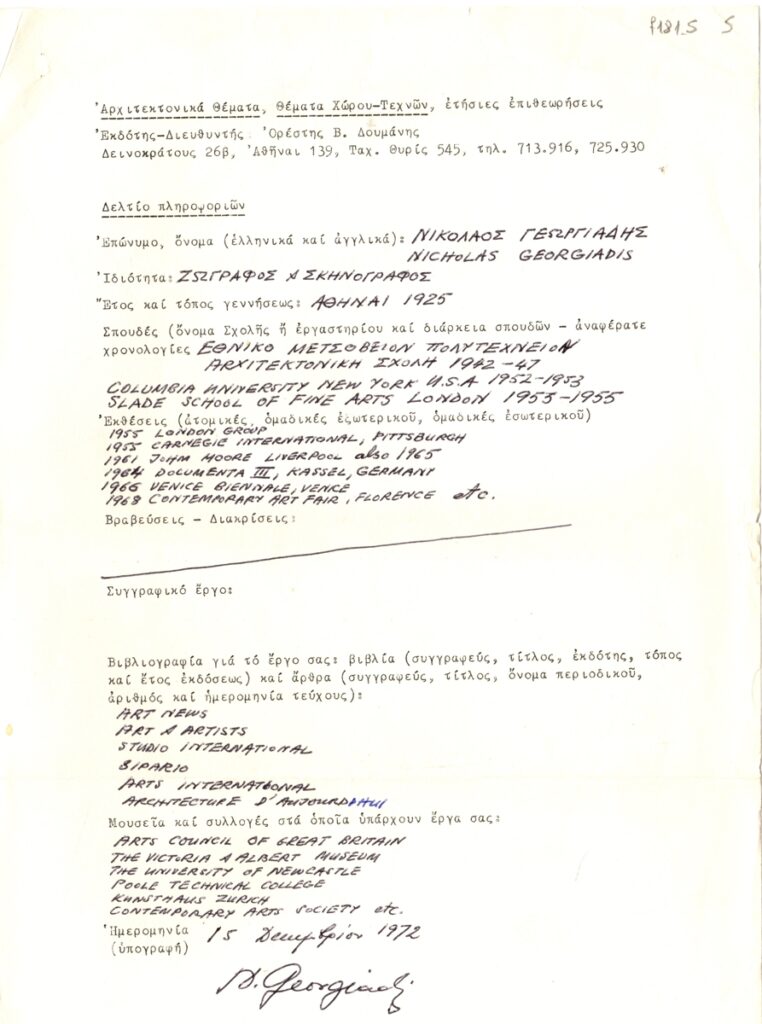 P181.S S
'Αρχιτεκτονικά Θέματα, Θέματα Χώρου-Τεχνῶν, ἐτήσιες ἐπιθεωρήσεις
'Εκδότης-Διευθυντής 'Ορέστης Β. Δουμάνης
Δεινοκράτους 26β, 'Αθῆναι 139, Ταχ. Θυρίς 545, τηλ. 713.916, 725.930
Δελτίο πληροφοριῶν
'Επώνυμο, ὄνομα (ἑλληνικά καί ἀγγλικά): ΝΙΚΟΛΑΟΣ ΓΕΩΡΓΙΑΔΗΣ
NICHOLAS GEORGIADIS
'Ιδιότητα: ΖΩΓΡΑΦΟΣ & ΣΚΗΝΟΓΡΑΦΟΣ
"Ετος καί τόπος γεννήσεως: ΑΘΗΝΑΙ 1925
Σπουδές (ὄνομα Σχολῆς ἤ ἐργαστηρίου καί διάρκεια σπουδῶν - ἀναφέρατε
χρονολογίες ΕΘΝΙΚΟ ΜΕΤΣΟΒΕΙΟΝ ΠΟΛΥΤΕΧΝΕΙΟΝ
ΑΡΧΙΤΕΚΤΟΝΙΚΗ ΣΧΟΛΗ 1942-47
COLUMBIA UNIVERSITY NEW YORK U.S.A 1952-1953
SLADE SCHOOL OF FINE ARTS LONDON 1953-1955
'Εκθέσεις (ἀτομικές, ὁμαδικές ἐξωτερικοῦ, ὁμαδικές ἐσωτερικοῦ)
1955 LONDON GROUP
1955 CARNEGIE INTERNATIONAL, PITTSBURGH
1961 JOHN MOORE LIVERPOOL also 1965
1964 DOCUMENTA III, KASSEL, GERMANY
1966 VENICE BIENNALE, VENICE
1968 CONTEMPORARY ART FAIR, FLORENCE etc.
Βραβεύσεις - Διακρίσεις:
Συγγραφικό ἔργο:
Βιβλιογραφία γιά τό ἔργο σας: βιβλία (συγγραφεύς, τίτλος, ἐκδότης, τόπος
καί ἔτος ἐκδόσεως) καί ἄρθρα (συγγραφεύς, τίτλος, ὄνομα περιοδικοῦ,
ἀριθμός καί ἡμερομηνία τεύχους):
ART NEWS
ART & ARTISTS
STUDIO INTERNATIONAL
SIPARIO
ARTS INTERNATIONAL
ARCHITECTURE D'AUJOURDHUI
Μουσεῖα καί συλλογές στά ὁποῖα ὑπάρχουν ἔργα σας:
ARTS COUNCIL OF GREAT BRITAIN
THE VICTORIA & ALBERT MUSEUM
THE UNIVERSITY OF NEWCASTLE
POOLE TECHNICAL COLLEGE
KUNSTHAUS ZURICH
CONTEMPORARY ARTS SOCIETY etc.
'Ημερομηνία 15 Δεκεμβρίου 1972
(ὑπογραφή)
N. Georgiadis